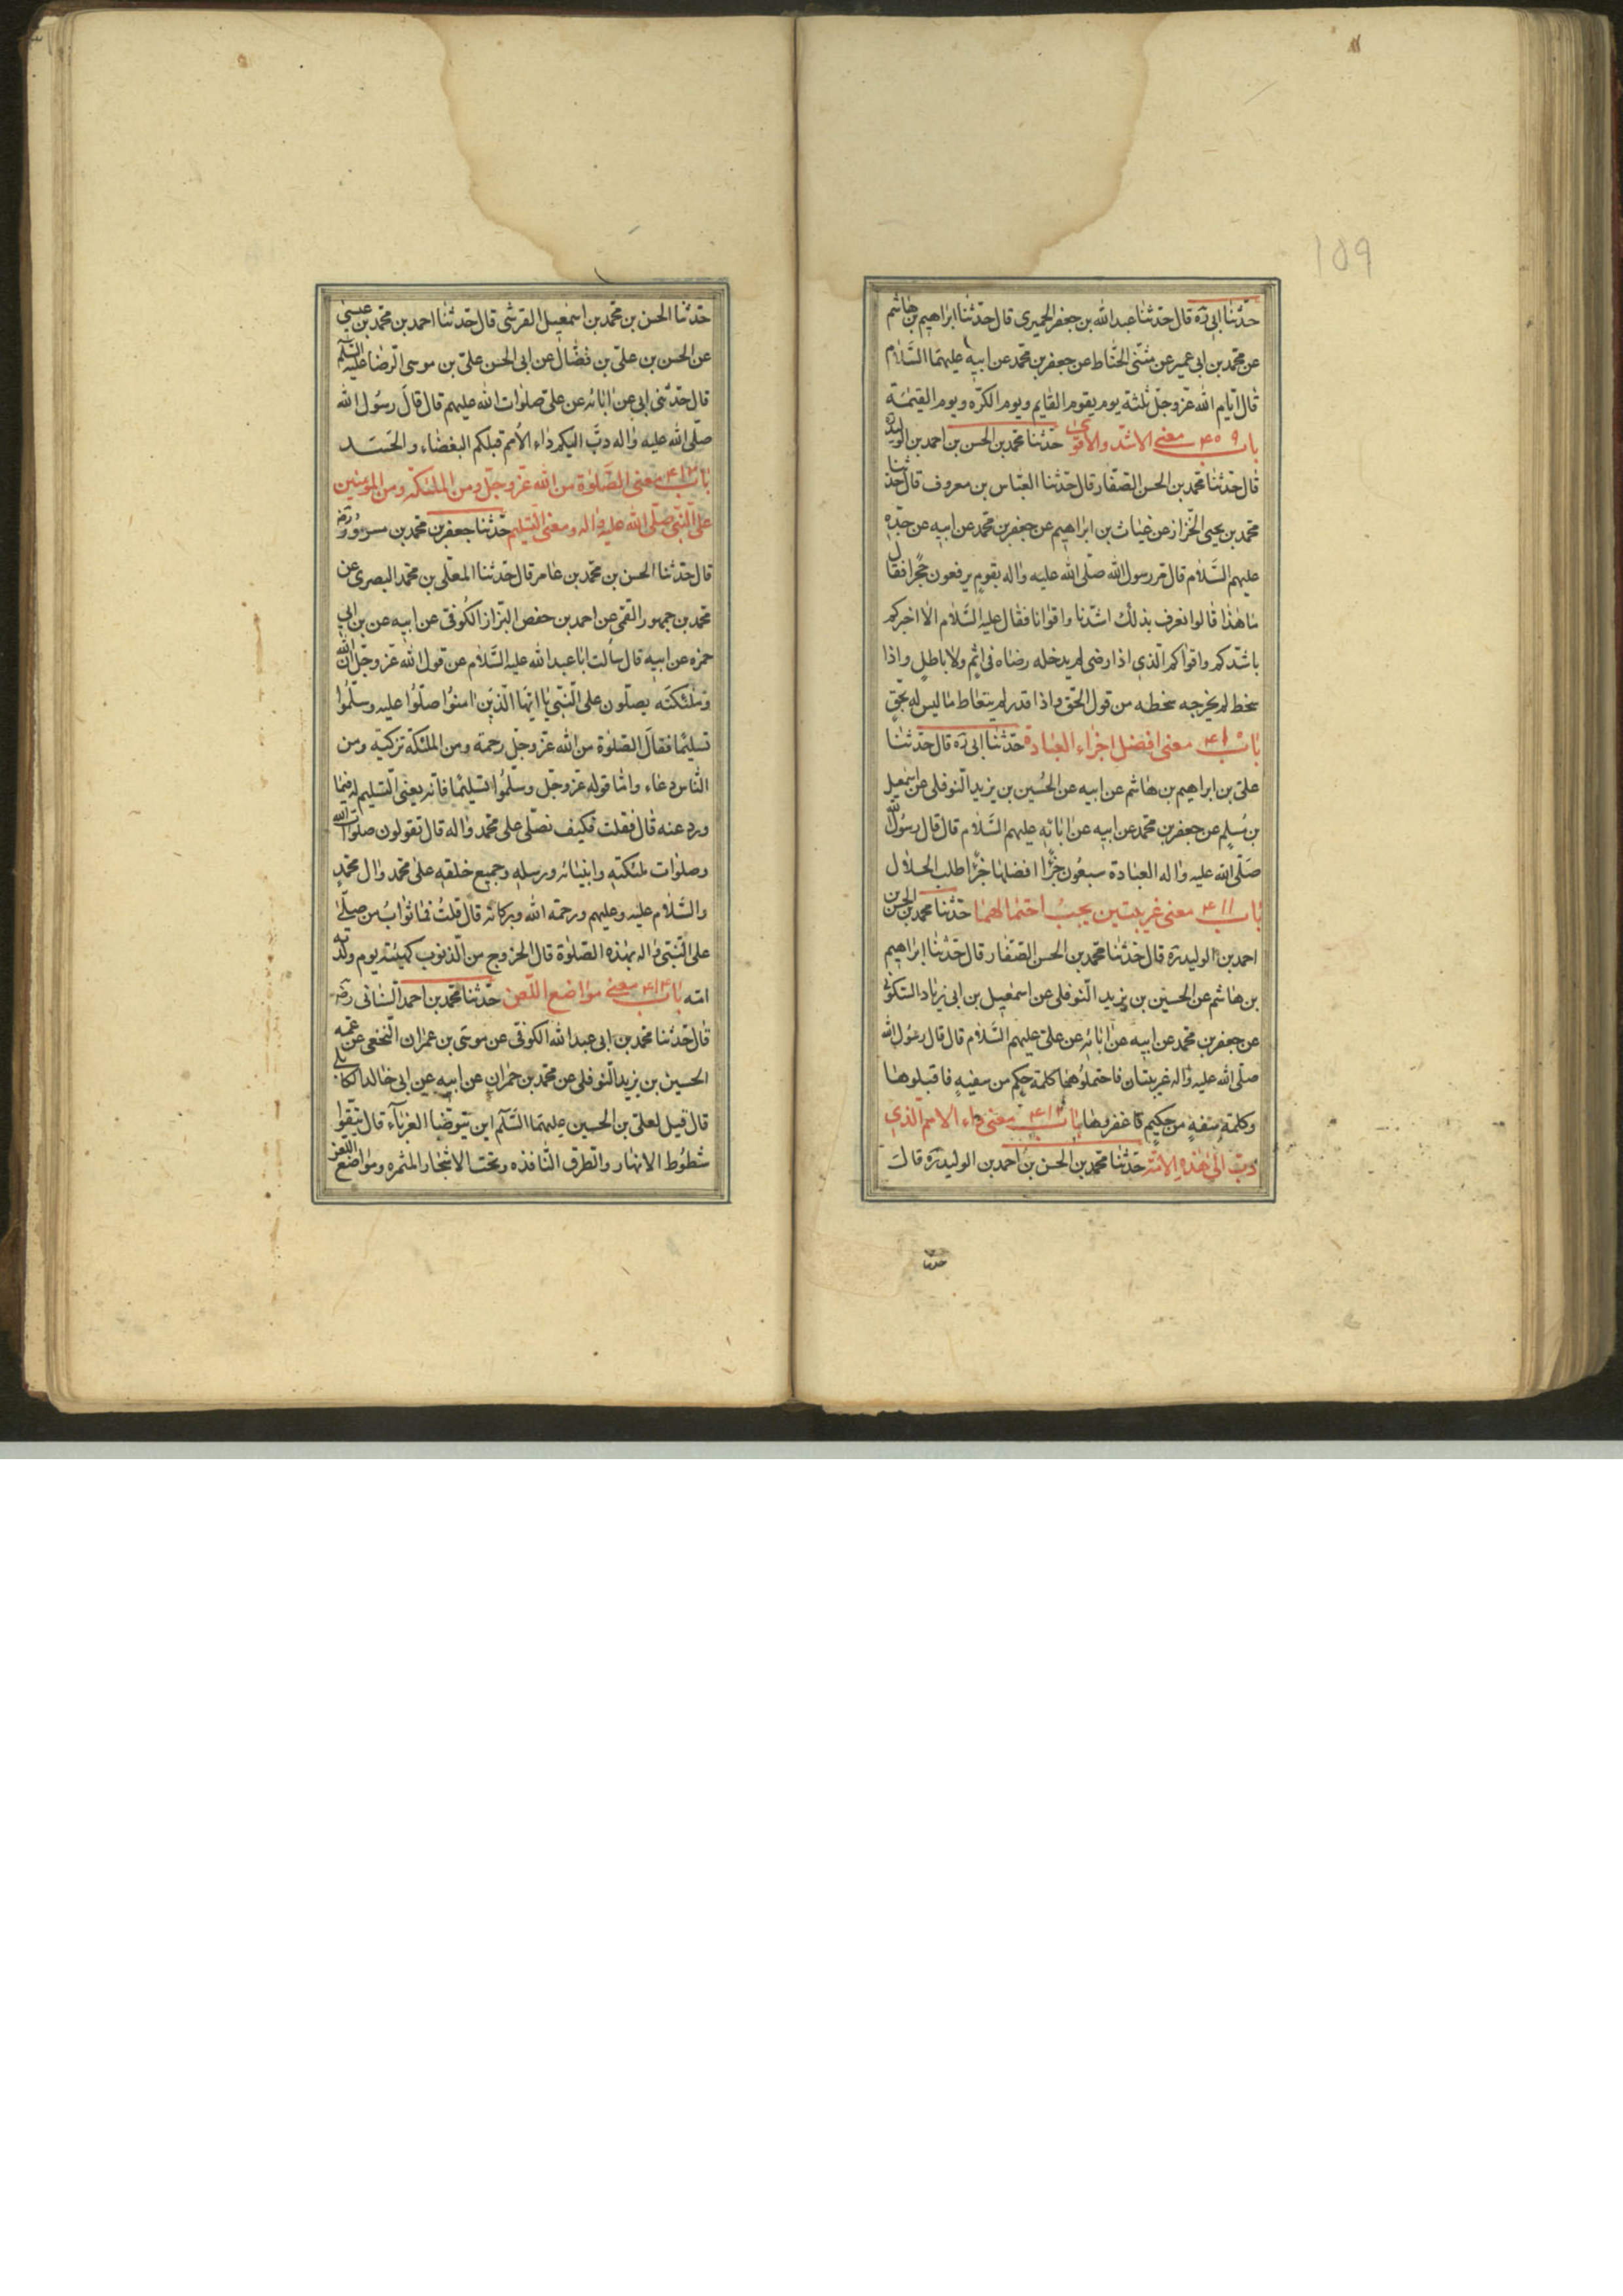 159
حدّثنا ابى ره قال حدثنا عبد الله بن جعفر الحميرى قال حدّثنا ابراهيم بن هاشم
عن محمّد بن ابى عمير عن مثنّى الحنّاط عن جعفر بن محمّد عن ابيه عليهما السَّلام
قال ايّام الله عزّ وجلّ ثلثة يوم يقوم القايم ويوم الكرّه ويوم القيمة
باب ۴۰۹ معنى الاشدّ والاقوى حدّثنا محمّد بن الحسن بن احمد بن الوليد ره
قال حدّثنا محمّد بن الحسن الصفّار قال حدّثنا العبّاس بن معروف قال حدّثنا
محمّد بن يحيى الخزاز عن غياث بن ابراهيم عن جعفر بن محمّد عن ابيه عن جدّه
عليهم السَّلام قال مرّ رسول الله صلّى الله عليه واله بقومٍ يرفعون حجرا فقال
ما هذا قالوا نعرف بذلك اشدّنا واقوانا فقال عليه السَّلام الا اخبركم
باشدّكم واقواكم الّذى اذا رضى لم يدخله رضاه فى اثمٍ ولا باطلٍ واذا
سخط لم يخرجه سخطه من قول الحقّ واذا قدر لم يتعاط ما ليس له بحقٍ
باب ۴۱۰ معنى افضل اجزاء العبادة حدّثنا ابى ره قال حدّثنا
علىّ بن ابراهيم بن هاشم عن ابيه عن الحُسين بن يزيد النّوفلى عن اسمعيل
بن مُسلم عن جعفر بن محمّد عن ابيه عن ابائه عليهم السَّلام قال قال رسُول الله
صَلّى الله عليه واله العبادة سبعُون جزًا افضلها جزًا طلب الحلال
باب ۴۱۱ معنى غريبتين يجبُ احتمالهما حدّثنا محمّد بن الحسن بن
احمد بن الوليد ره قال حدّثنا محمّد بن الحسن الصّفار قال حدّثنا ابراهيم
بن هاشم عن الحسين بن يزيد النّوفلى عن اسمعيل بن ابى زياد السّكونى
عن جعفر بن محمّد عن ابيه عن ابائه عن علىّ عليهم السَّلام قال قال رسُول الله
صلّى الله عليه واله غريبتان فاحتملُوهما كلمة حكمٍ من سفيهٍ فاقبلوها
وكلمة سفهٍ من حكيمٍ فاغفروها باب ۴۱۲ معنى داء الامم الّذى
دبّ الى هذه الامّة حدّثنا محمّد بن الحسن بن احمد بن الوليد ره قال
حدثنا
حدّثنا الحسن بن محمّد بن اسمعيل القرشى قال حدّثنا احمد بن محمّد بن عيسى
عن الحسن بن علىّ بن فضّال عن ابى الحسن علىّ بن موسى الرّضا عليه السّلم
قال حدّثنى ابى عن ابائه عن علىّ صلوات الله عليهم قال قالَ رسُول الله
صلّى الله عليه واله دبَّ اليكم داء الأمم قبلكم البغضاء والحسد
باب ۴۱۳ معنى الصَّلوة من الله عزّ وجلّ ومن الملئكة ومن المؤمنين
على النّبى صلّى الله عليه واله ومعنى التّسليم حدّثنا جعفر بن محمّد بن مسرور رض
قال حدّثنا الحسن بن محمّد بن عامر قال حدّثنا المعلّى بن محمّد البصرى عن
محمّد بن جمهور القمى عن احمد بن حفص البزاز الكُوفى عن ابيه عن بن ابى
حمزه عن ابيه قال سألت ابا عبد الله عليه السَّلام عن قول الله عزّ وجلّ انّ الله
وملئكته يصلّون على النّبىّ يا ايّها الّذيَن امنُوا صلّوُا عليه وسلّمُوا
تسليمًا فقالَ الصّلوة من الله عزّ وجلّ رحمة ومن الملئكة تزكية ومن
النّاس دعاء وامّا قوله عزّ وجلّ وسلّمُوا تسليمًا فانّه يعنى التّسليم له فيما
ورد عنه قال فقلت فكيف نصلّى على محمّد واله قال تقولون صلوات الله
وصلوات ملئكته وانبيائه ورسله وجميع خلقه على محمّد وال محمّدٍ
والسَّلام عليه وعليهم ورحمة الله وبركاته قال قلتُ فما ثوابُ من صلّى
على النّبى واله بهذه الصّلوة قال الخروج من الذّنوب كهيئته يوم ولدته
امّه باب ۴۱۴ معنى مواضع اللّعن حدّثنا محمّد بن احمد السّنانى رض
قال حدّثنا محمّد بن ابى عبد الله الكوفى عن موسَى بن عمران النّخعى عن عمّه
الحسين بن يزيد النّوفلى عن محمّد بن حمران عن ابيه عن ابى خالد الكابلى
قال قيل لعلى بن الحسين عليهما السَّلم اين يتوضّا الغرباء قال يتّقوا
شطُوط الانهار والطّرق النّافذه وتحت الاشجار المثمره ومواضع اللعن